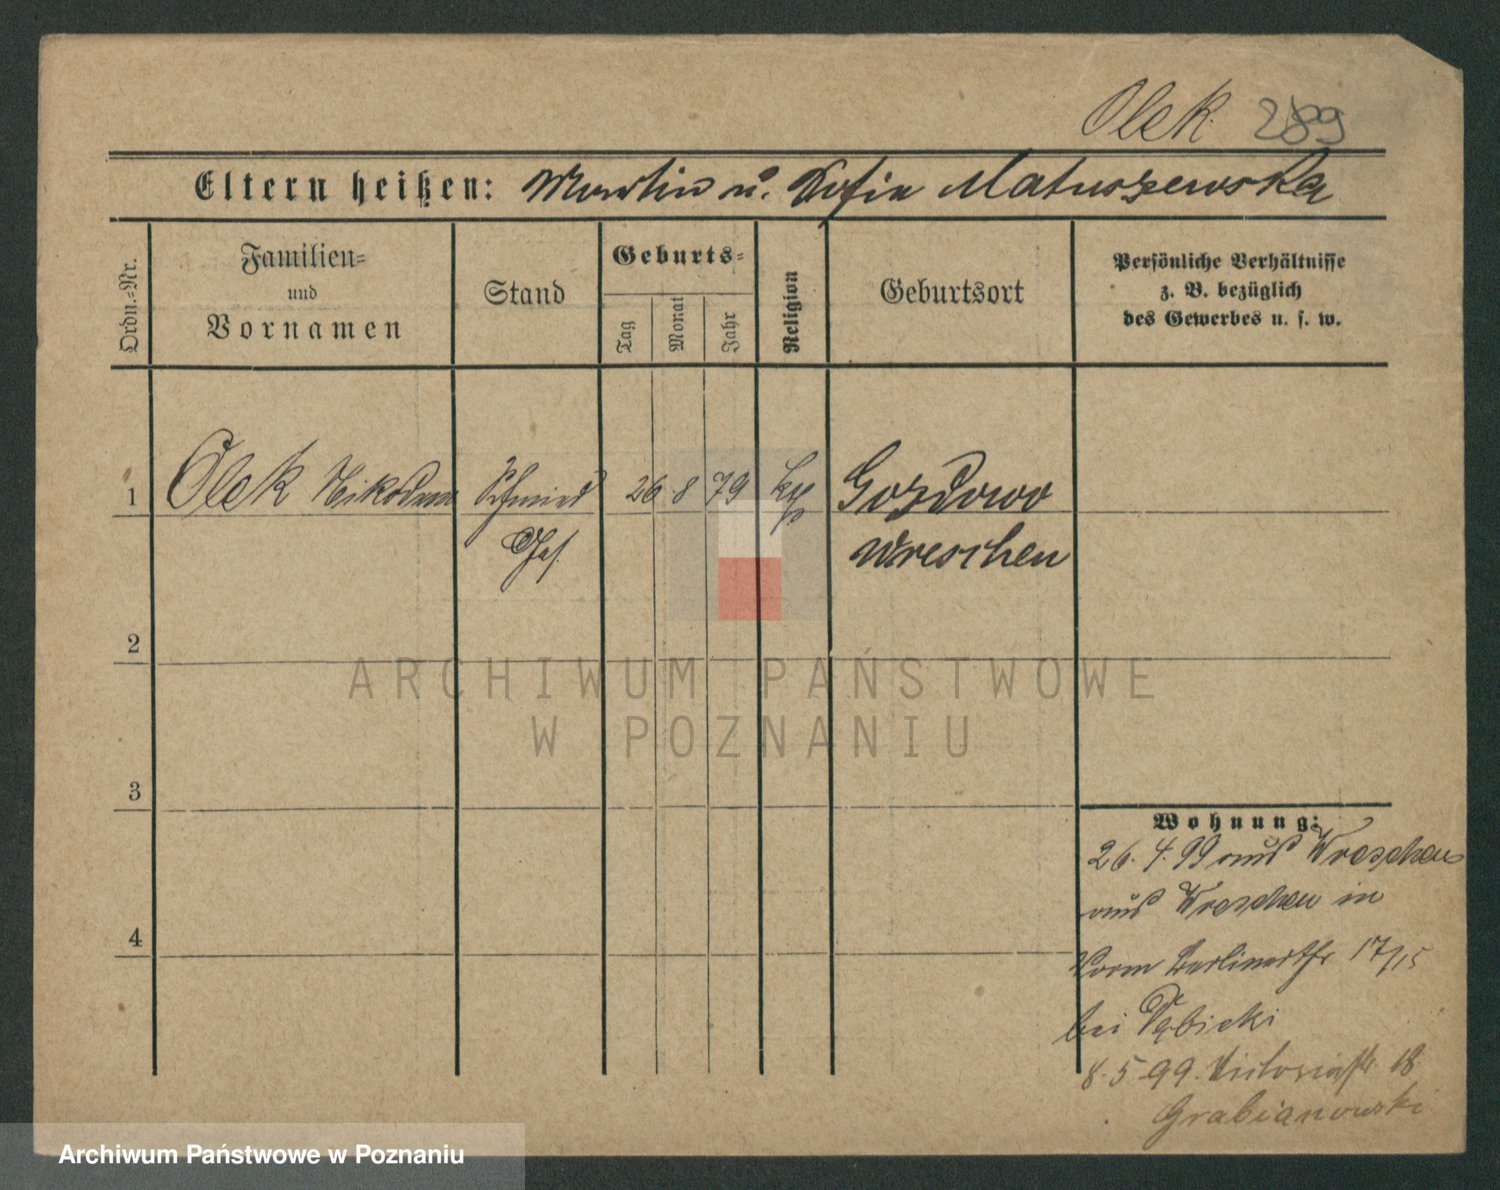 Olek 289
Eltern heißen: Martin u. Sofia Matuszewska
Ordn.=Nr.
Familien=
und
Vornamen
Stand
Geburts=
Tag
Monat
Jahr
Religion
Geburtsort
Persönliche Verhältnisse
z. B. bezüglich
des Gewerbes u. s. w.
1 Olek Nikodem Schmied 26 8 79 Gozdowo
Wreschen
2
3
4
Wohnung:
26. 4. 99 aus Wreschen
aus Wreschen in
Berlinerstr 17/15
bei Dąbicki
8. 5. 99. Victoriastr. 18
Grabianowski
ARCHIWUM PAŃSTWOWE
W POZNANIU
Archiwum Państwowe w Poznaniu